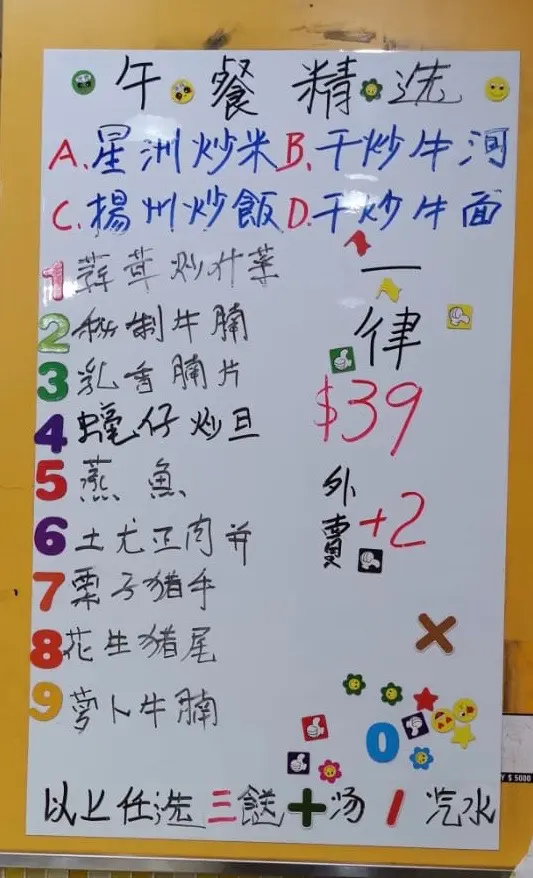 午餐精选
A.星洲炒米 B.干炒牛河
C.揚州炒飯 D.干炒牛面
1 蓉茸炒什菜
2 秘制牛腩
3 乳香腩片
4 蠔仔炒旦
5 蒸魚
6 土尤正肉并
7 栗子猪手
8 花生猪尾
9 萝卜牛腩
一律
$39
外賣+2
0
以上任选三餸+汤/汽水
Y $ 5000